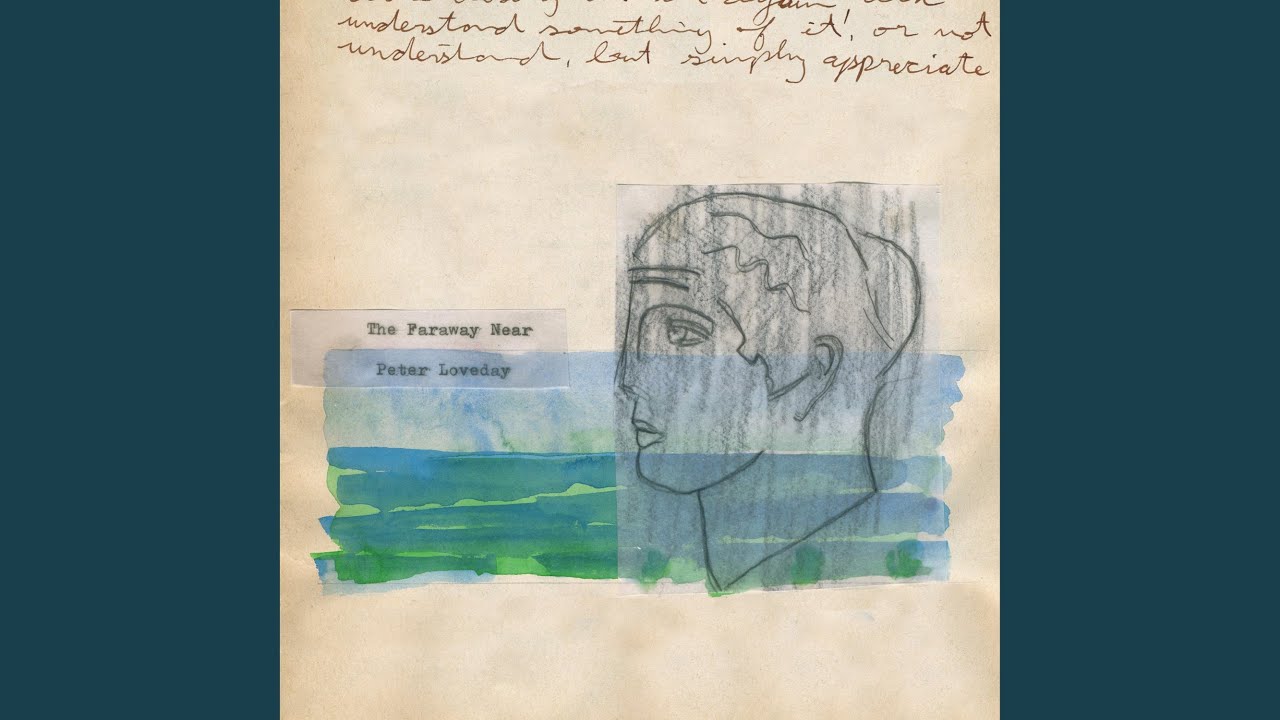 understand something of it!, or not
understand, but simply appreciate
The Faraway Near
Peter Loveday